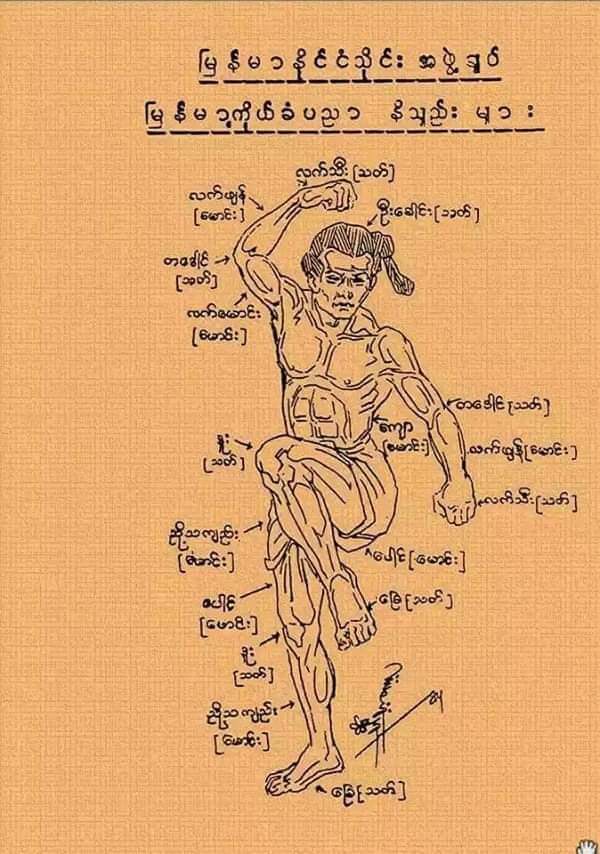 မြန်မာနိုင်ငံသိုင်းအဖွဲ့ချုပ်
မြန်မာ့ကိုယ်ခံပညာ နိသျှည်းများ
လက်သီး[သတ်]
လက်ဖျံ
[မောင်း]
ဦးခေါင်း[သတ်]
တဒေါင်
[သတ်]
လက်မောင်း
[မောင်း]
တဒေါင်[သတ်]
ကျော
[မောင်း]
လက်ဖျံ[မောင်း]
လက်သီး[သတ်]
ဒူး
[သတ်]
ညို့သကျည်း
[မောင်း]
ပေါင်[မောင်း]
ပေါင်
[မောင်း]
ခြေ[သတ်]
ဒူး
[သတ်]
ညို့သကျည်း
[မောင်း]
ခြေ[သတ်]